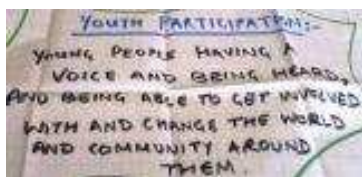 YOUTH PARTICIPATION:-
YOUNG PEOPLE HAVING A
VOICE AND BEING HEARD,
AND BEING ABLE TO GET INVOLVED
WITH AND CHANGE THE WORLD
AND COMMUNITY AROUND
THEM.